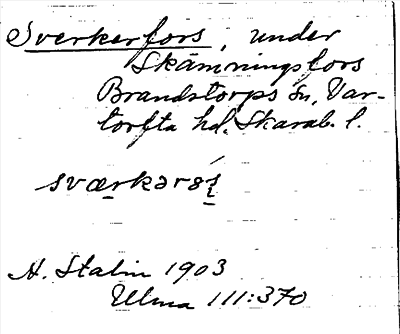 Sverkerfors, under
Skämningsfors
Brandstorps sn, Var-
tofta hd. Skarab. l.
N. Stalin 1903
Ulma 111:370